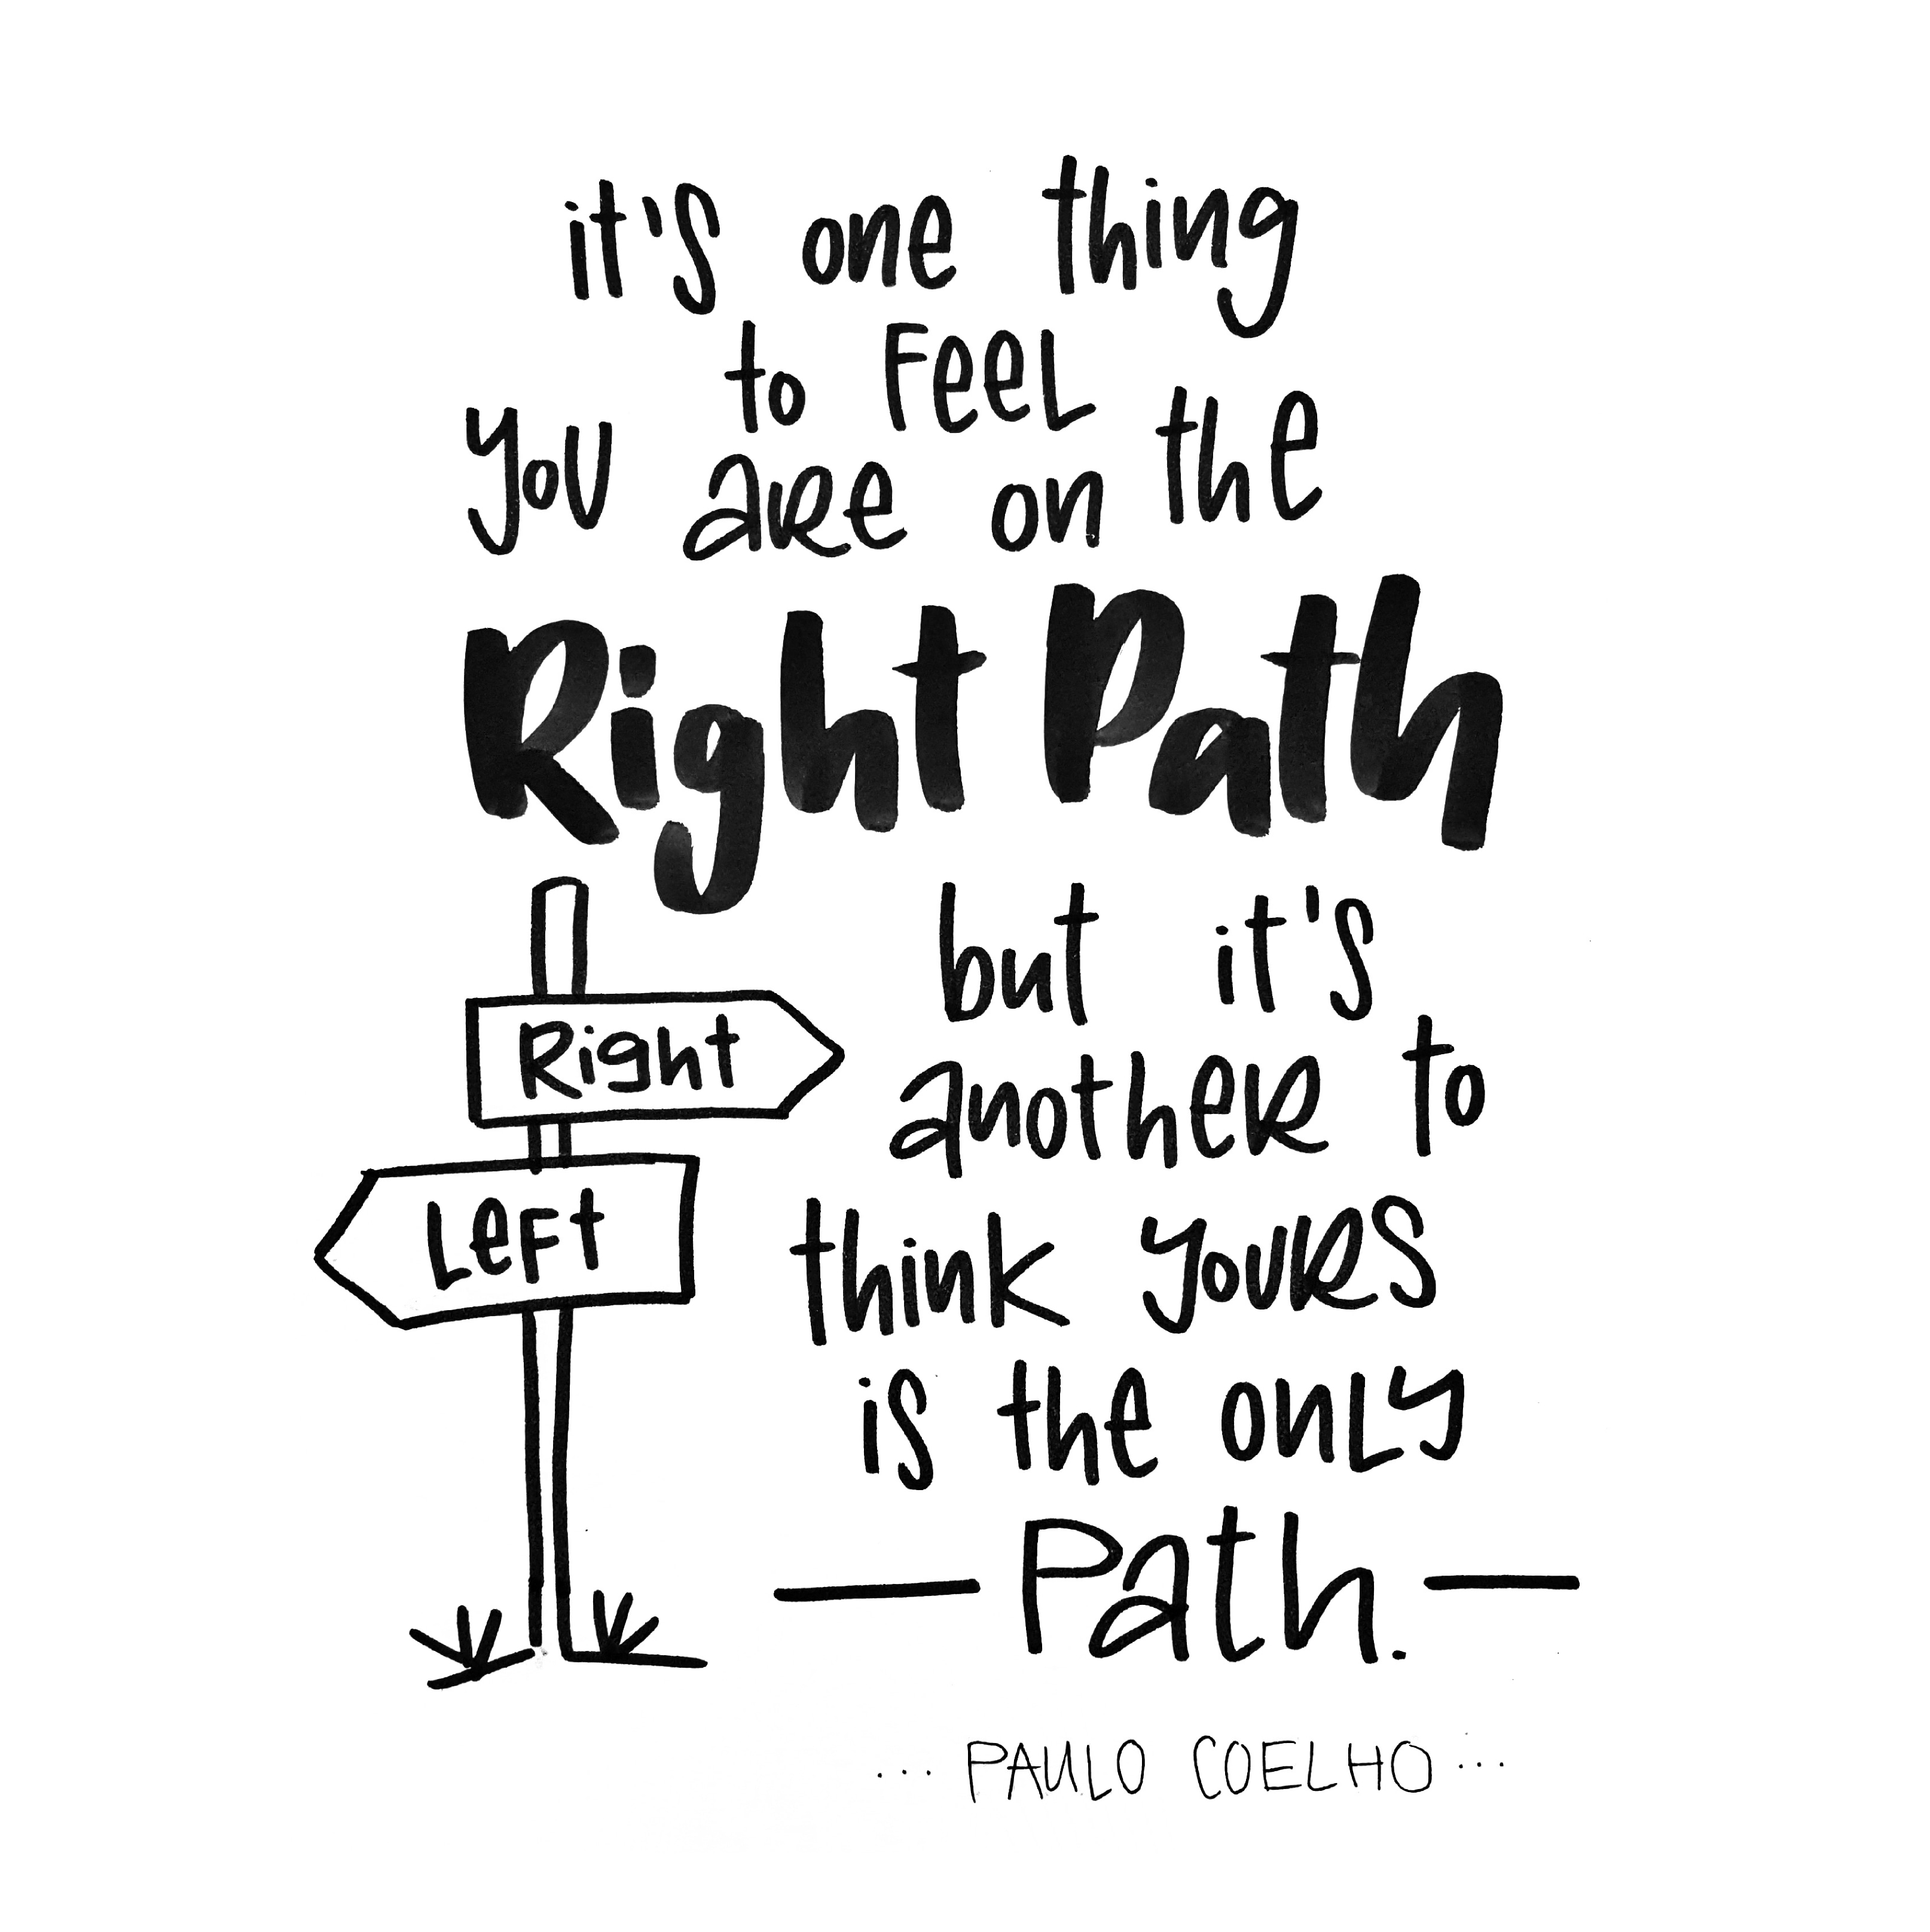 it's one thing
to FeeL
you are on the
Right Path
but it's
another to
Right
Left
think yours
is the only
Path.
... PAULO COELHO ...